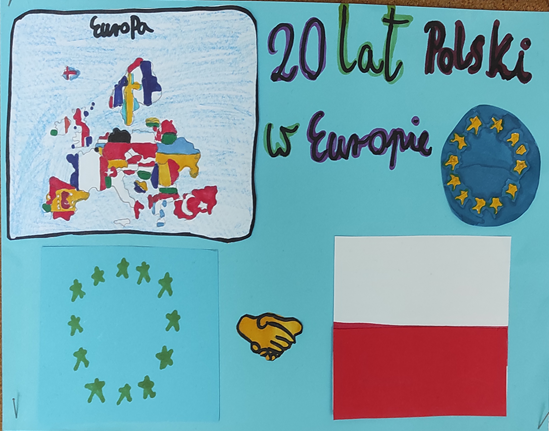 Europa
20 lat Polski
w Europie